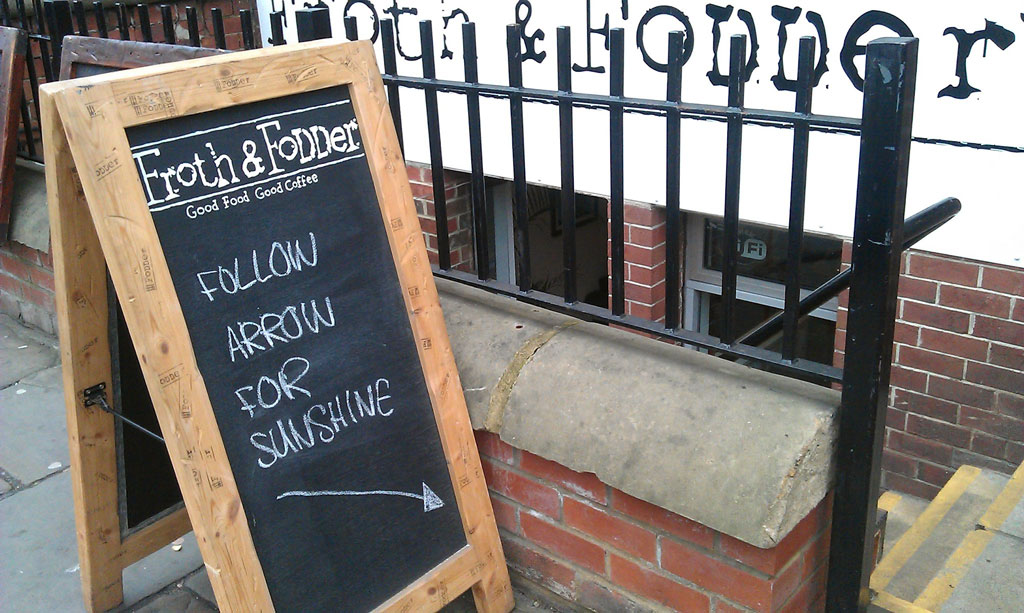 Froth & Fodder
Froth & Fodder
Good Food Good Coffee
FOLLOW
ARROW
FOR
SUNSHINE
Fi